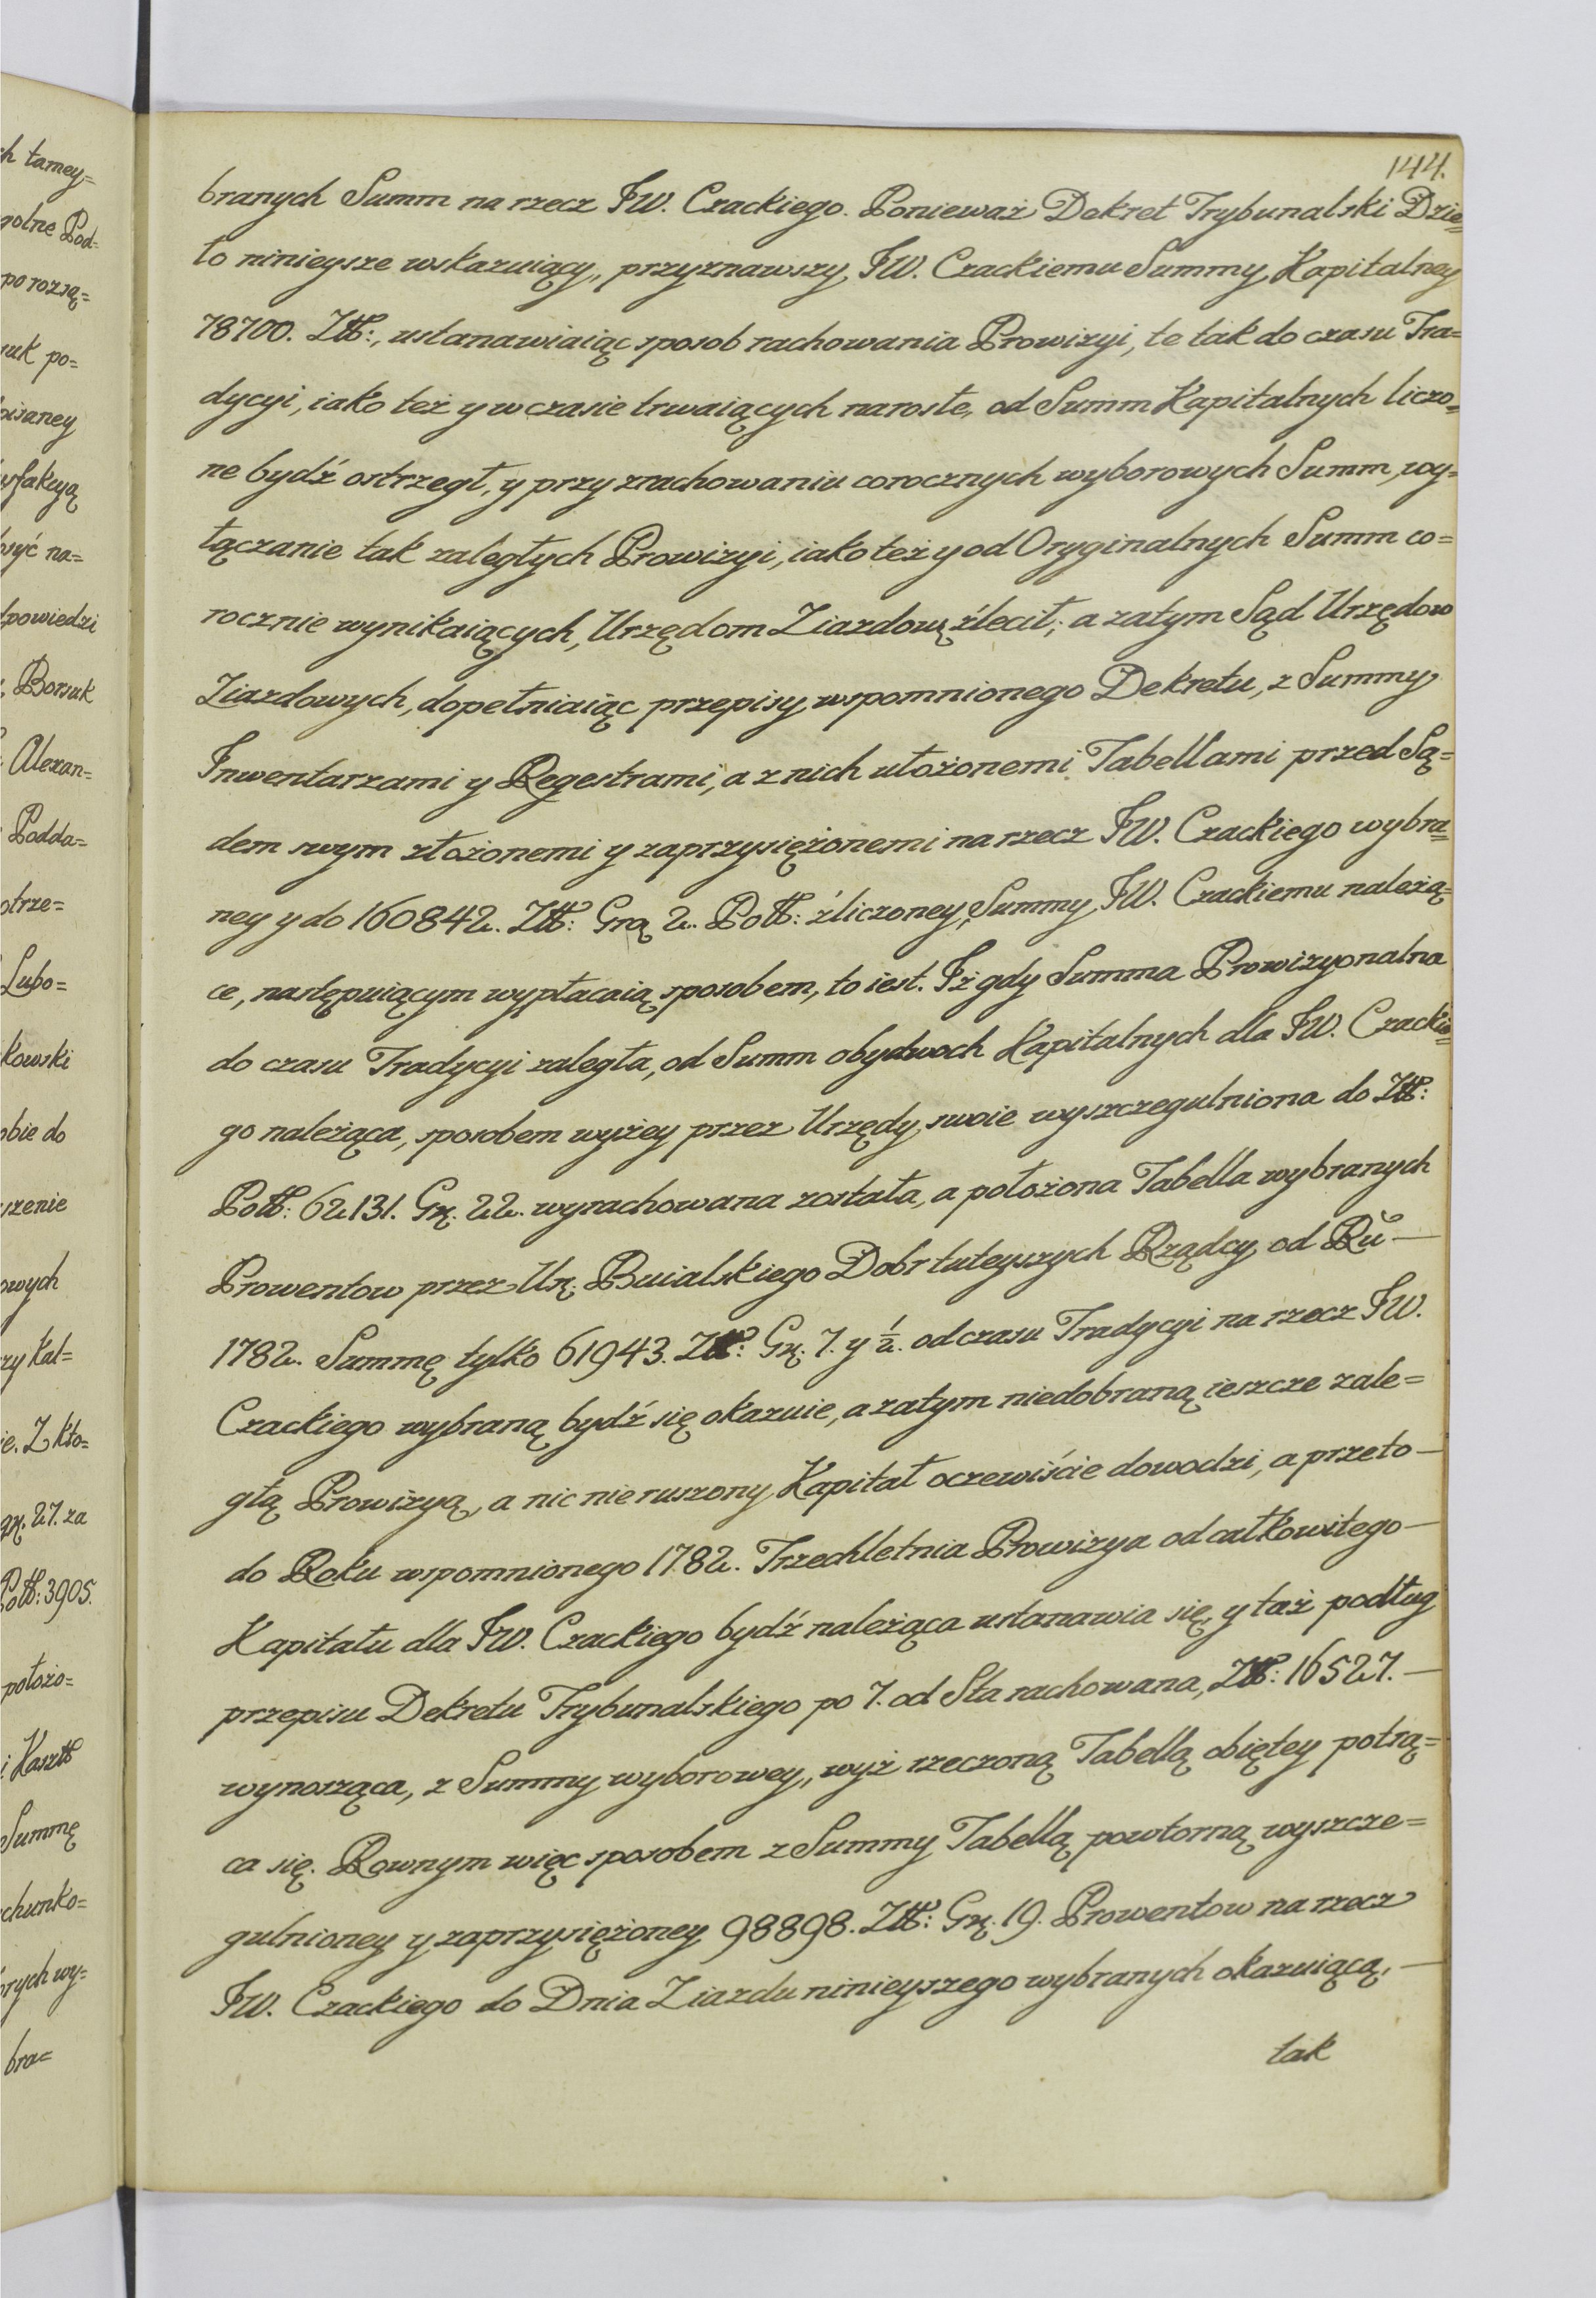 144.
branych Summ na rzecz JW. Czackiego. Ponieważ Dekret Trybunalski Dzie=
ło ninieysze wskazuiący, przyznawszy JW. Czackiemu Summy Kapitalney
78700. Złł:, ustanawiaiąc sposob rachowania Prowizyi, te tak do czasu Tra=
dycyi, iako też y w czasie trwaiących narosłe, od Summ Kapitalnych liczo=
ne bydź ostrzegł, y przy zrachowaniu corocznych wyborowych Summ, wy=
łączanie tak zaległych Prowizyi, iako też y od Oryginalnych Summ co=
rocznie wynikaiących, Urzędom Ziazdową źlecił; a zatym Sąd Urzędow
Ziazdowych, dopełniaiąc przepisy wspomnionego Dekretu, z Summy
Inwentarzami y Regestrami, a z nich ułożonemi Tabellami przed Są=
dem swym złożonemi y zaprzysiężonemi na rzecz JW. Czackiego wybra=
ney y do 160842. Złł: Grą 2. Polł: źliczoney, Summy JW. Czackiemu należą=
ce, następuiącym wypłacaią sposobem, to iest. Iż gdy Summa Prowizyonalna
do czasu Tradycyi zaległa, od Summ obydwoch Kapitalnych dla JW. Czackie=
go należąca, sposobem wyżey przez Urzędy swoie wyszczegulniona do Złł:
Polł: 62131. Grą. 22. wyrachowana została, a położona Tabella wybranych
Prowentow przez Urą. Buialskiego Dobr tuteyszych Rządcy od Ru
1782. Summę tylko 61943. Złł: Grą. 7. y 1/2. od czasu Tradycyi na rzecz JW.
Czackiego wybraną bydź się okazuie, a zatym niedobraną ieszcze zale=
głą Prowizyą, a nic nie ruszony Kapitał oczewiście dowodzi, a przeto —
do Roku wspomnionego 1782. Trzechletnia Prowizya od całkowitego —
Kapitału dla JW. Czackiego bydź należąca ustanawia się, y taż podług
przepisu Dekretu Trybunalskiego po 7. od Sta rachowana, Złł: 16527. —
wynosząca, z Summy wyborowey, wyż rzeczoną Tabellą obiętey potrą=
ca się. Rownym więc sposobem z Summy Tabellą powtorną wyszcze=
gulnioney y zaprzysiężoney 98898. Złł: Grą. 19. Prowentow na rzecz
JW. Czackiego do Dnia Ziazdu ninieyszego wybranych okazuiącą, —
tak